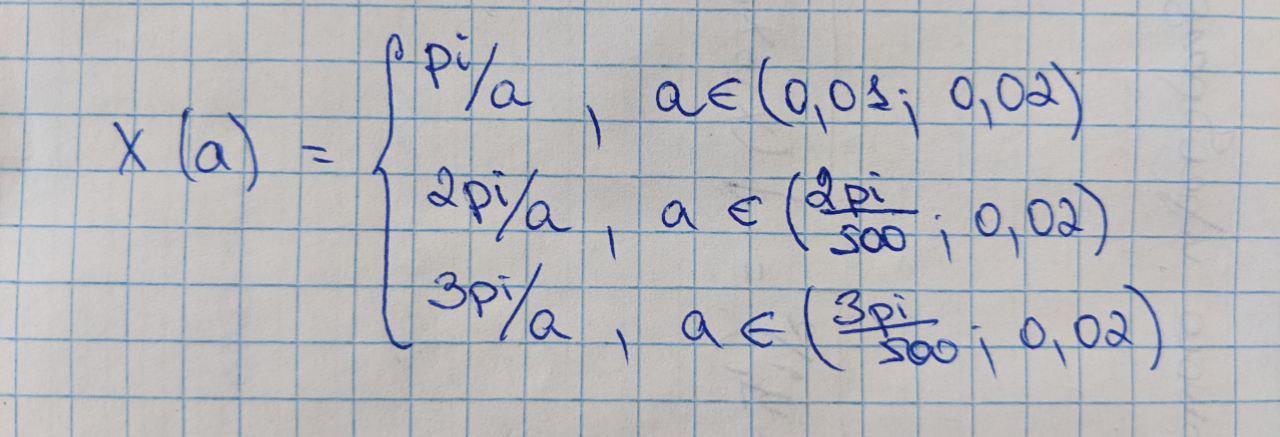 pi/a , a ∈ (0,01; 0,02)
X(a) = {
2pi/a , a ∈ (2pi/500 ; 0,02)
3pi/a , a ∈ (3pi/500 ; 0,02)